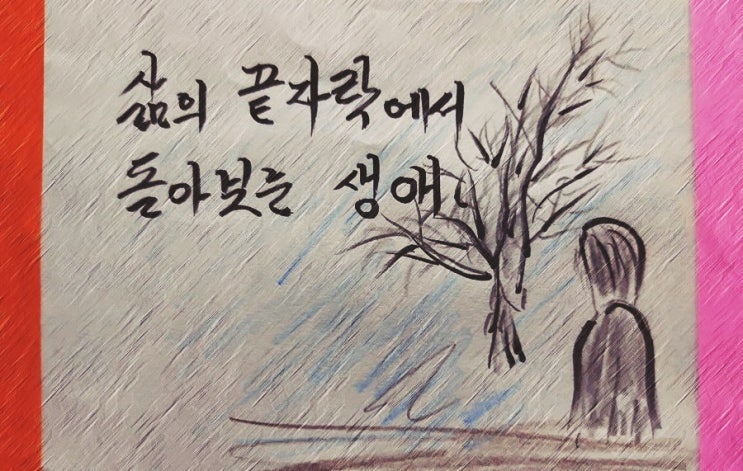 삶의 끝자락에서
돌아보는 생애